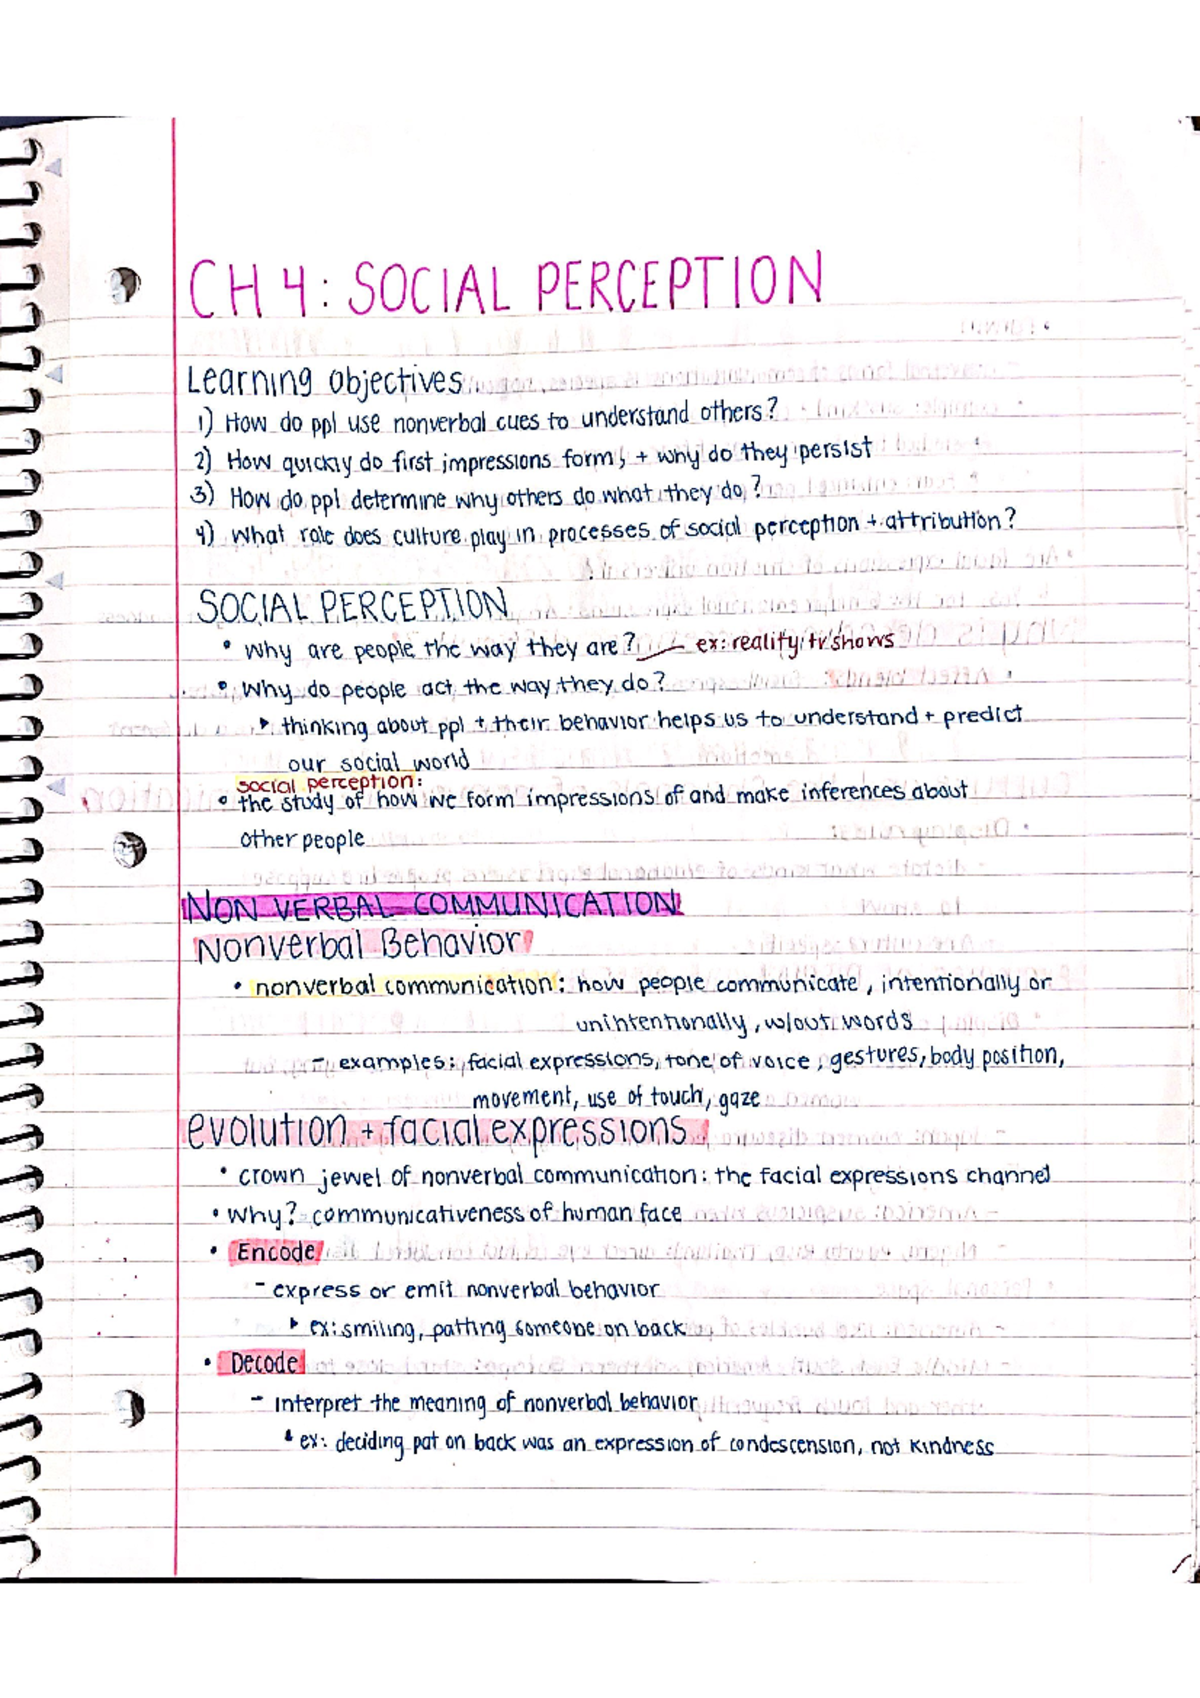 CH 4: SOCIAL PERCEPTION
Learning Objectives
1) How do ppl use nonverbal cues to understand others?
2) How quickly do first impressions form, + why do they persist
3) How do ppl determine why others do what they do?
4) What role does culture play in processes of social perception + attribution?
SOCIAL PERCEPTION
• Why are people the way they are? — ex: reality tv shows
• Why do people act the way they do?
▸ thinking about ppl + their behavior helps us to understand + predict
our social world
social perception:
• the study of how we form impressions of and make inferences about
other people
NON VERBAL COMMUNICATION
Nonverbal Behavior
• nonverbal communication: how people communicate, intentionally or
unintentionally, w/out words
- examples: facial expressions, tone of voice, gestures, body position,
movement, use of touch, gaze
evolution + facial expressions
• crown jewel of nonverbal communication: the facial expressions channel
• Why? communicativeness of human face
• Encode
- express or emit nonverbal behavior
▸ ex: smiling, patting someone on back
• Decode
- interpret the meaning of nonverbal behavior
▸ ex: deciding pat on back was an expression of condescension, not kindness